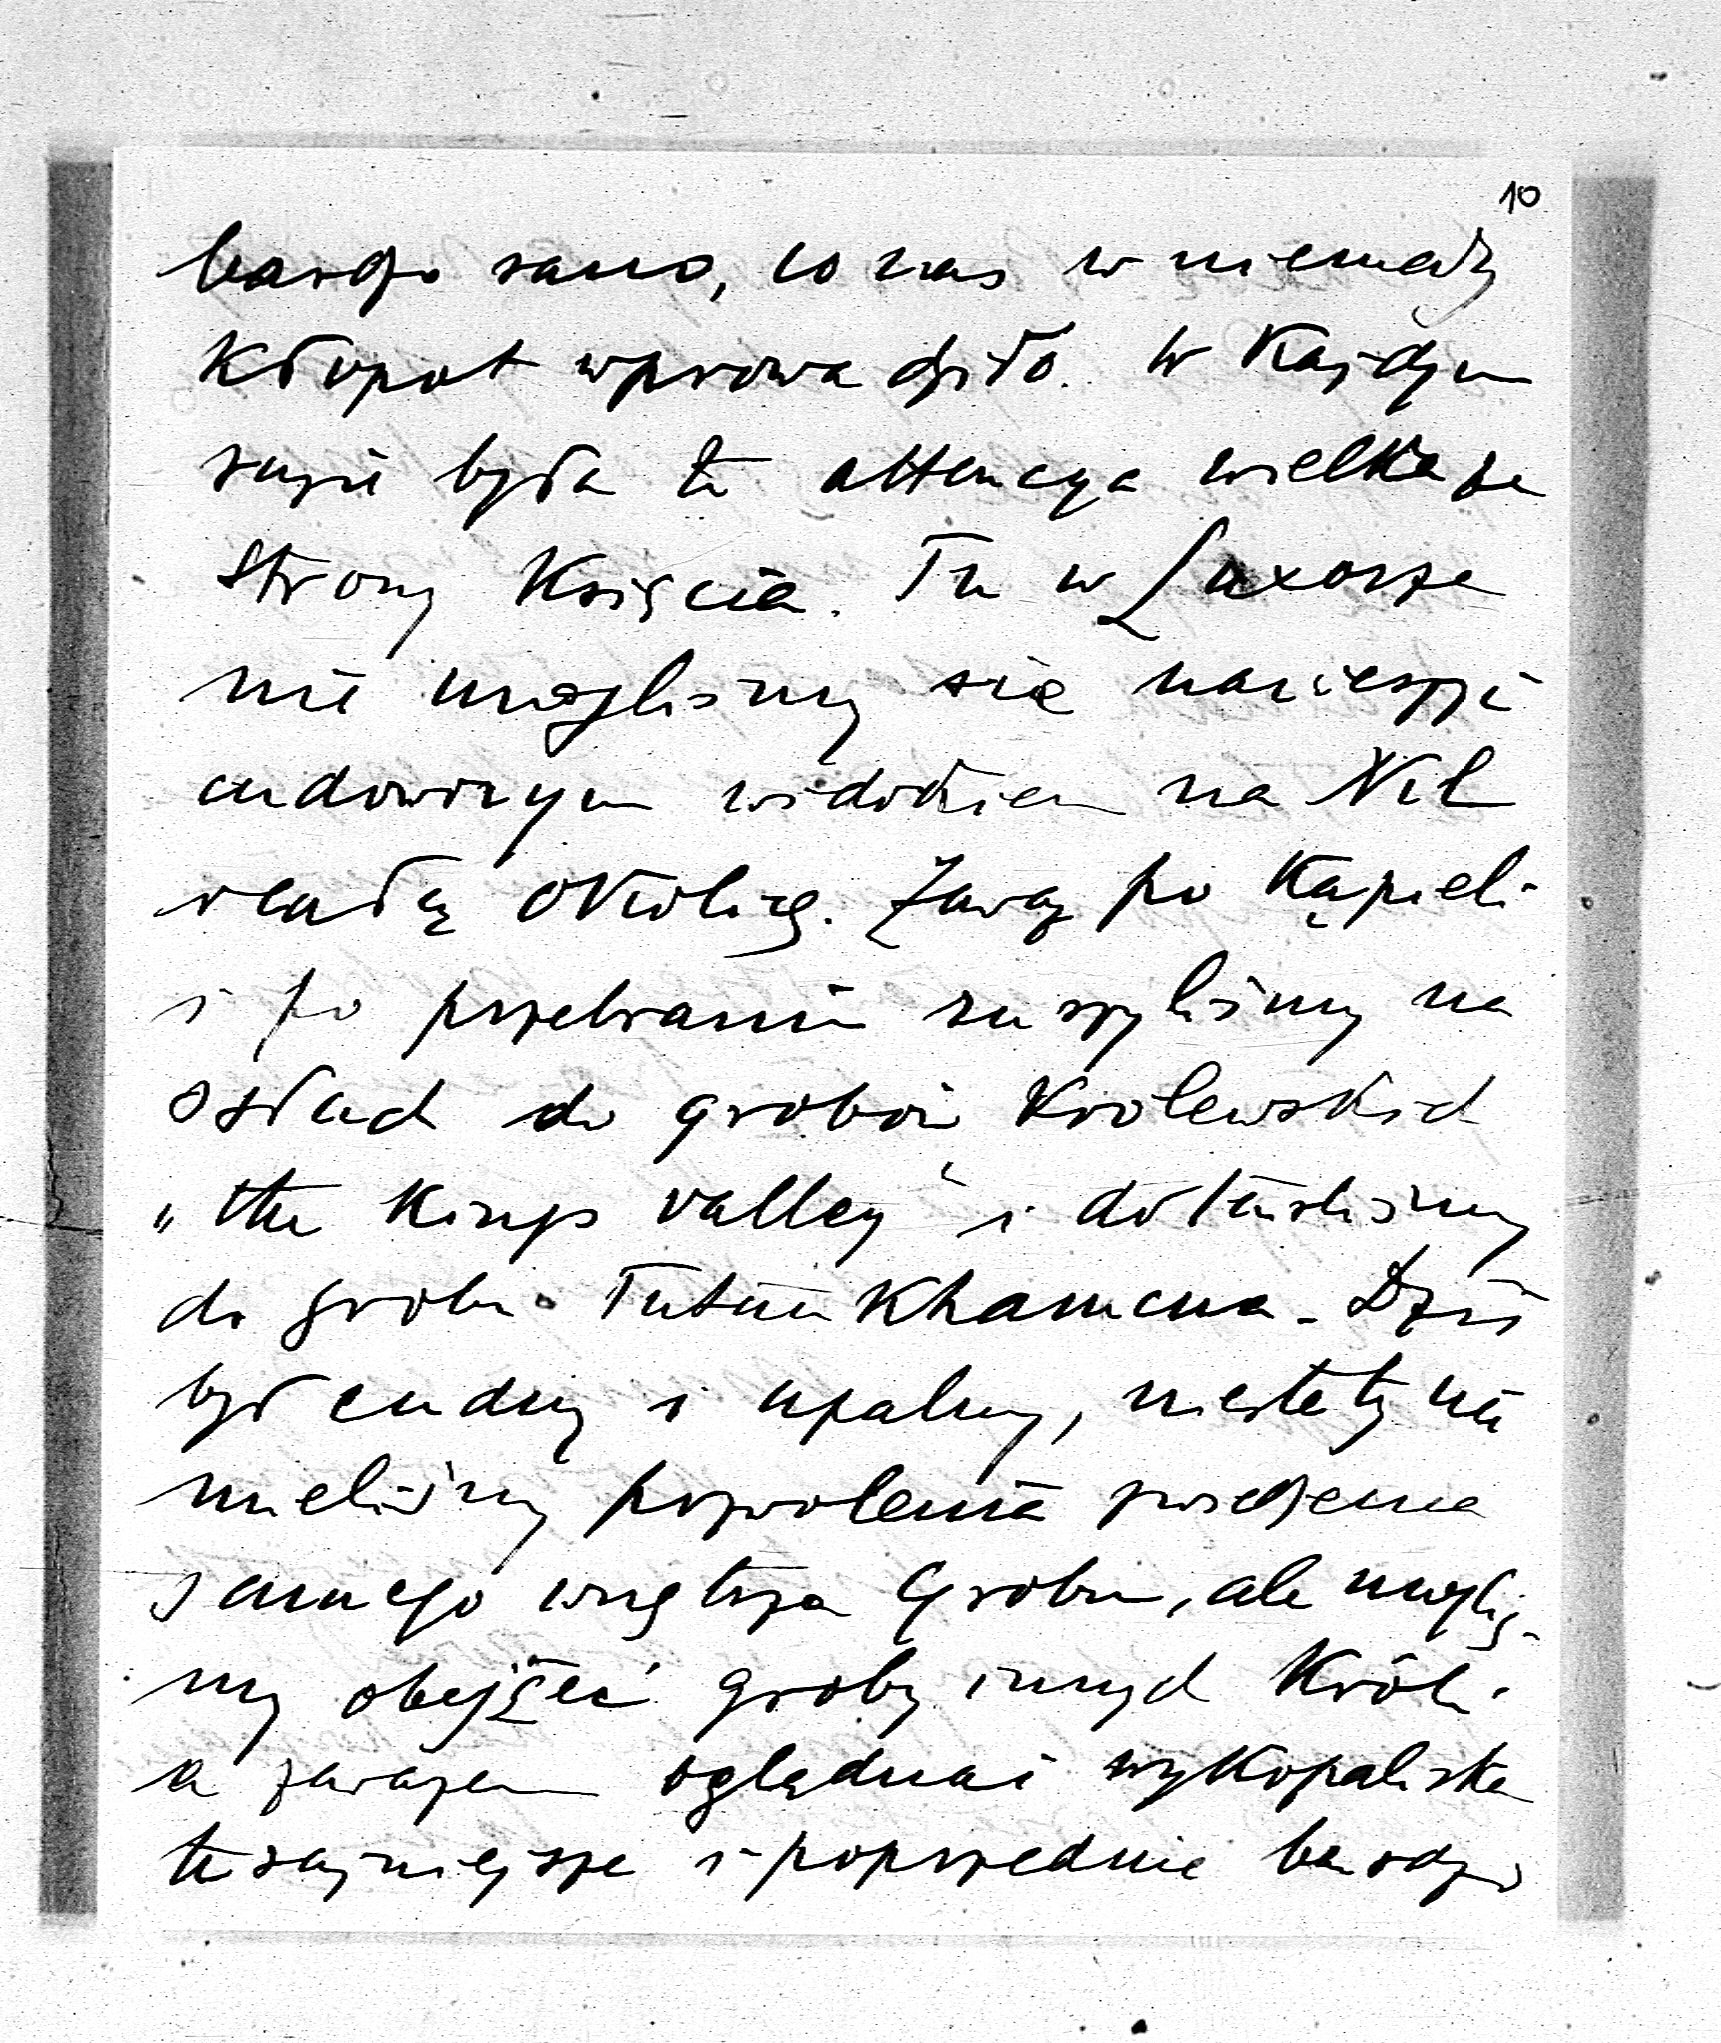 10
bardzo rano, co nas w niemały
kłopot wprowadziło. W każdym
razie była to attencya wielka ze
strony Księcia. Tu w Luxorze
nie mogliśmy się nacieszyć
cudownym widokiem na Nil
i całą okolicę. Zaraz po kąpieli
i po przebraniu ruszyliśmy na
osłach do grobów Królewskich
„the Kings valley" i dotarliśmy
do grobu Tutankhamena. Dzień
był cudny i upalny, niestety nie
mieliśmy pozwolenia zwiedzenia
samego wnętrza Grobu, ale mogliś-
my obejrzeć groby innych Króli
a zarazem oglądnąć wykopaliska
teraźniejsze i poprzednie bardzo